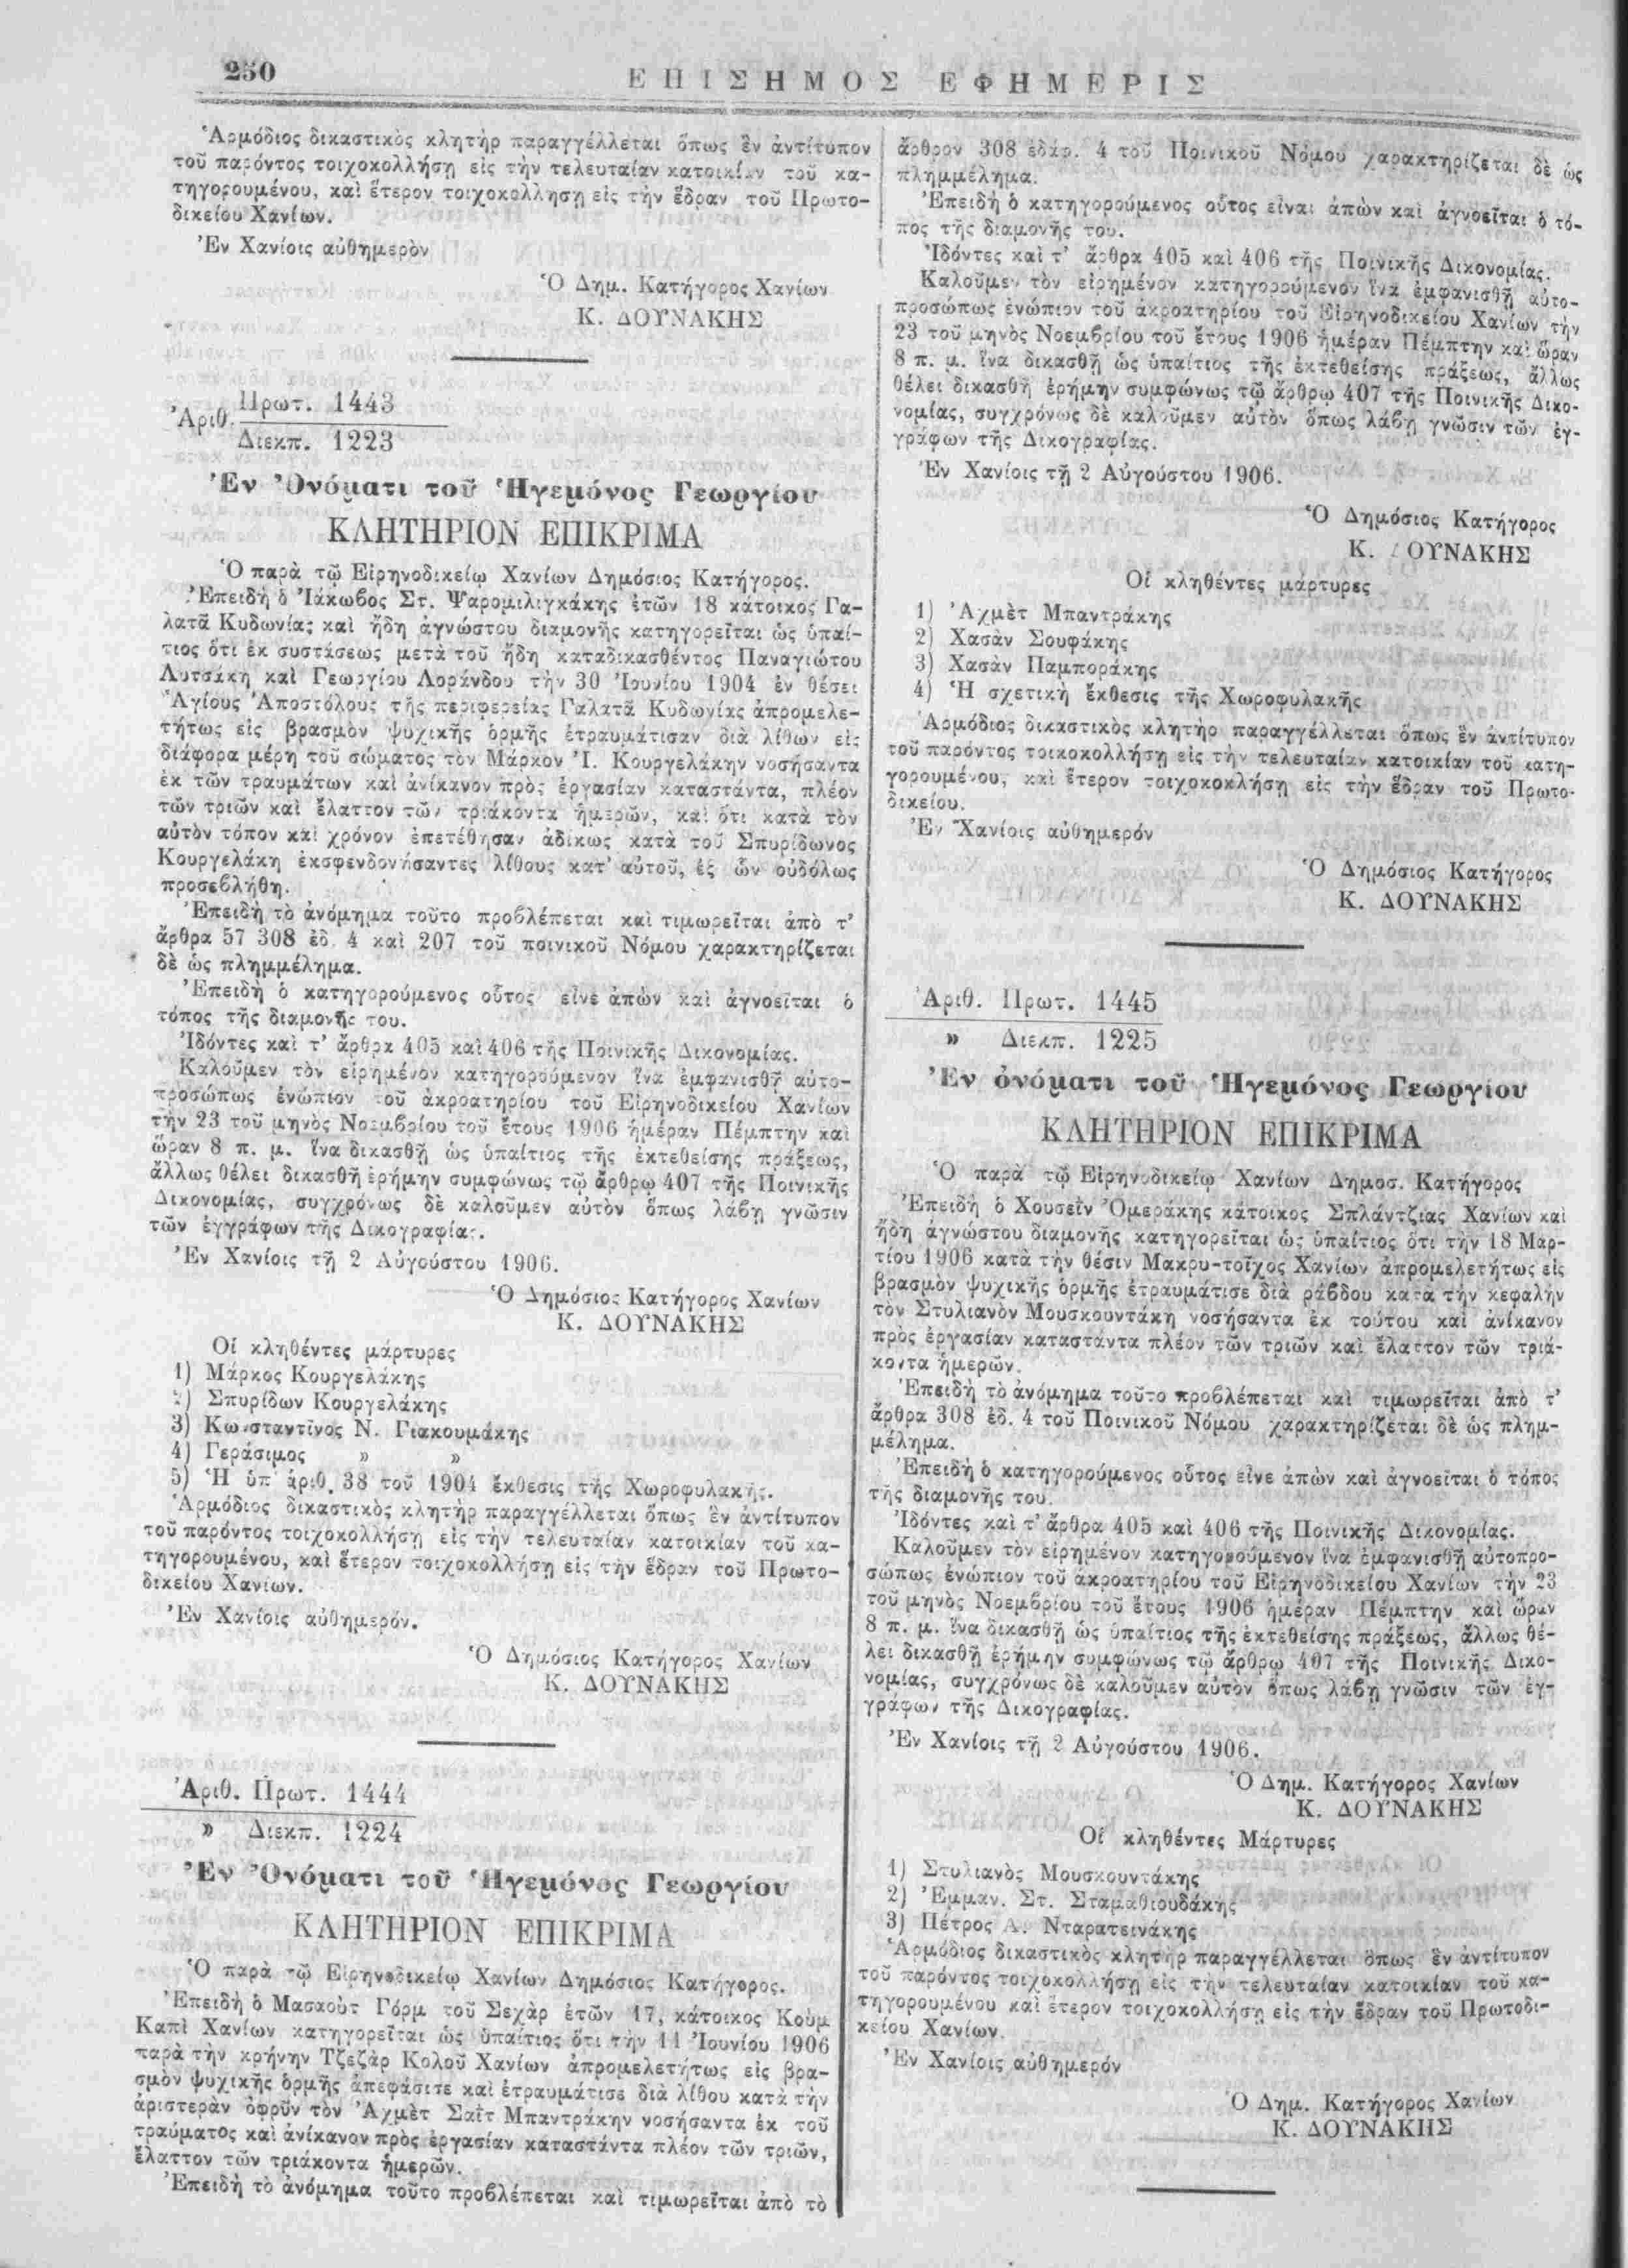 250
ΕΠΙΣΗΜΟΣ ΕΦΗΜΕΡΙΣ
Ἁρμόδιος δικαστικὸς κλητὴρ παραγγέλλεται ὅπως ἓν ἀντίτυπον
τοῦ παρόντος τοιχοκολλήσῃ εἰς τὴν τελευταίαν κατοικίαν τοῦ κα-
τηγορουμένου, καὶ ἕτερον τοιχοκολλησῃ εἰς τὴν ἕδραν τοῦ Πρωτο-
δικείου Χανίων.
Ἐν Χανίοις αὐθημερὸν
Ὁ Δημ. Κατήγορος Χανίων
Κ. ΔΟΥΝΑΚΗΣ
Ἀριθ. Πρωτ. 1443
Διεκπ. 1223
Ἐν Ὀνόματι τοῦ Ἡγεμόνος Γεωργίου
ΚΛΗΤΗΡΙΟΝ ΕΠΙΚΡΙΜΑ
Ὁ παρὰ τῷ Εἰρηνοδικείῳ Χανίων Δημόσιος Κατήγορος.
Ἐπειδὴ ὁ Ἰάκωβος Στ. Ψαρομιλιγκάκης ἐτῶν 18 κάτοικος Γα-
λατᾶ Κυδωνίας καὶ ἤδη ἀγνώστου διαμονῆς κατηγορεῖται ὡς ὑπαί-
τιος ὅτι ἐκ συστάσεως μετὰ τοῦ ἤδη καταδικασθέντος Παναγιώτου
Λυτσάκη καὶ Γεωργίου Λοράνδου τὴν 30 Ἰουνίου 1904 ἐν θέσει
Ἁγίους Ἀποστόλους τῆς περιφερείας Γαλατᾶ Κυδωνίας ἀπρομελε-
τήτως εἰς βρασμὸν ψυχικῆς ὁρμῆς ἐτραυμάτισαν διὰ λίθων εἰς
διάφορα μέρη τοῦ σώματος τὸν Μάρκον Ἰ. Κουργελάκην νοσήσαντα
ἐκ τῶν τραυμάτων καὶ ἀνίκανον πρὸς ἐργασίαν καταστάντα, πλέον
τῶν τριῶν καὶ ἔλαττον τῶν τριάκοντα ἡμερῶν, καὶ ὅτι κατὰ τὸν
αὐτὸν τόπον καὶ χρόνον ἐπετέθησαν ἀδίκως κατὰ τοῦ Σπυρίδωνος
Κουργελάκη ἐκσφενδονήσαντες λίθους κατ' αὐτοῦ, ἐξ ὧν οὐδόλως
προσεβλήθη.
Ἐπειδὴ τὸ ἀνόμημα τοῦτο προβλέπεται καὶ τιμωρεῖται ἀπὸ τ'
ἄρθρα 57 308 ἐδ. 4 καὶ 207 τοῦ ποινικοῦ Νόμου χαρακτηρίζεται
δὲ ὡς πλημμέλημα.
Ἐπειδὴ ὁ κατηγορούμενος οὗτος εἶνε ἀπὼν καὶ ἀγνοεῖται ὁ
τόπος τῆς διαμονῆς του.
Ἰδόντες καὶ τ' ἄρθρα 405 καὶ 406 τῆς Ποινικῆς Δικονομίας.
Καλοῦμεν τὸν εἰρημένον κατηγορούμενον ἵνα ἐμφανισθῇ αὐτο-
προσώπως ἐνώπιον τοῦ ἀκροατηρίου τοῦ Εἰρηνοδικείου Χανίων
τὴν 23 τοῦ μηνὸς Νοεμβρίου τοῦ ἔτους 1906 ἡμέραν Πέμπτην καὶ
ὥραν 8 π. μ. ἵνα δικασθῇ ὡς ὑπαίτιος τῆς ἐκτεθείσης πράξεως,
ἄλλως θέλει δικασθῆ ἐρήμην συμφώνως τῷ ἄρθρῳ 407 τῆς Ποινικῆς
Δικονομίας, συγχρόνως δὲ καλοῦμεν αὐτὸν ὅπως λάβῃ γνῶσιν
τῶν ἐγγράφων τῆς Δικογραφίας.
Ἐν Χανίοις τῇ 2 Αὐγούστου 1906.
Ὁ Δημόσιος Κατήγορος Χανίων
Κ. ΔΟΥΝΑΚΗΣ
Οἱ κληθέντες μάρτυρες
1) Μάρκος Κουργελάκης
2) Σπυρίδων Κουργελάκης
3) Κωνσταντῖνος Ν. Γιακουμάκης
4) Γεράσιμος » »
5) Ἡ ὑπ' ἀριθ. 38 τοῦ 1904 ἔκθεσις τῆς Χωροφυλακῆς.
Ἁρμόδιος δικαστικὸς κλητὴρ παραγγέλλεται ὅπως ἓν ἀντίτυπον
τοῦ παρόντος τοιχοκολλήσῃ εἰς τὴν τελευταίαν κατοικίαν τοῦ κα-
τηγορουμένου, καὶ ἕτερον τοιχοκολλήσῃ εἰς τὴν ἕδραν τοῦ Πρωτο-
δικείου Χανίων.
Ἐν Χανίοις αὐθημερόν.
Ὁ Δημόσιος Κατήγορος Χανίων
Κ. ΔΟΥΝΑΚΗΣ
Ἀριθ. Πρωτ. 1444
» Διεκπ. 1224
Ἐν Ὀνόματι τοῦ Ἡγεμόνος Γεωργίου
ΚΛΗΤΗΡΙΟΝ ΕΠΙΚΡΙΜΑ
Ὁ παρὰ τῷ Εἰρηνοδικείῳ Χανίων Δημόσιος Κατήγορος.
Ἐπειδὴ ὁ Μασαοὺτ Γόρμ τοῦ Σεχὰρ ἐτῶν 17, κάτοικος Κοὺμ
Καπὶ Χανίων κατηγορεῖται ὡς ὑπαίτιος ὅτι τὴν 11 Ἰουνίου 1906
παρὰ τὴν κρήνην Τζεζὰρ Κολοῦ Χανίων ἀπρομελετήτως εἰς βρα-
σμὸν ψυχικῆς ὁρμῆς ἀπεφάσισε καὶ ἐτραυμάτισε διὰ λίθου κατὰ τὴν
ἀριστερὰν ὀφρῦν τὸν Ἀχμὲτ Σαῒτ Μπαντράκην νοσήσαντα ἐκ τοῦ
τραύματος καὶ ἀνίκανον πρὸς ἐργασίαν καταστάντα πλέον τῶν τριῶν,
ἔλαττον τῶν τριάκοντα ἡμερῶν.
Ἐπειδὴ τὸ ἀνόμημα τοῦτο προβλέπεται καὶ τιμωρεῖται ἀπὸ τὸ
ἄρθρον 308 ἐδάφ. 4 τοῦ Ποινικοῦ Νόμου χαρακτηρίζεται δὲ ὡς
πλημμέλημα.
Ἐπειδὴ ὁ κατηγορούμενος οὗτος εἶναι ἀπὼν καὶ ἀγνοεῖται ὁ τό-
πος τῆς διαμονῆς του.
Ἰδόντες καὶ τ' ἄρθρα 405 καὶ 406 τῆς Ποινικῆς Δικονομίας.
Καλοῦμεν τὸν εἰρημένον κατηγορούμενον ἵνα ἐμφανισθῇ αὐτο-
προσώπως ἐνώπιον τοῦ ἀκροατηρίου τοῦ Εἰρηνοδικείου Χανίων τὴν
23 τοῦ μηνὸς Νοεμβρίου τοῦ ἔτους 1906 ἡμέραν Πέμπτην καὶ ὥραν
8 π. μ. ἵνα δικασθῇ ὡς ὑπαίτιος τῆς ἐκτεθείσης πράξεως, ἄλλως
θέλει δικασθῆ ἐρήμην συμφώνως τῷ ἄρθρῳ 407 τῆς Ποινικῆς Δικο-
νομίας, συγχρόνως δὲ καλοῦμεν αὐτὸν ὅπως λάβῃ γνῶσιν τῶν ἐγ-
γράφων τῆς Δικογραφίας.
Ἐν Χανίοις τῇ 2 Αὐγούστου 1906.
Ὁ Δημόσιος Κατήγορος
Κ. ΔΟΥΝΑΚΗΣ
Οἱ κληθέντες μάρτυρες
1) Ἀχμὲτ Μπαντράκης
2) Χασὰν Σουφάκης
3) Χασὰν Παμποράκης
4) Ἡ σχετικὴ ἔκθεσις τῆς Χωροφυλακῆς
Ἁρμόδιος δικαστικὸς κλητὴρ παραγγέλλεται ὅπως ἓν ἀντίτυπον
τοῦ παρόντος τοικοκολλήσῃ εἰς τὴν τελευταίαν κατοικίαν τοῦ κατη-
γορουμένου, καὶ ἕτερον τοιχοκοκλήσῃ εἰς τὴν ἕδραν τοῦ Πρωτο-
δικείου.
Ἐν Χανίοις αὐθημερόν
Ὁ Δημόσιος Κατήγορος
Κ. ΔΟΥΝΑΚΗΣ
Ἀριθ. Πρωτ. 1445
» Διεκπ. 1225
Ἐν ὀνόματι τοῦ Ἡγεμόνος Γεωργίου
ΚΛΗΤΗΡΙΟΝ ΕΠΙΚΡΙΜΑ
Ὁ παρὰ τῷ Εἰρηνοδικείῳ Χανίων Δημοσ. Κατήγορος
Ἐπειδὴ ὁ Χουσεῒν Ὀμεράκης κάτοικος Σπλάντζιας Χανίων καὶ
ἤδη ἀγνώστου διαμονῆς κατηγορεῖται ὡς ὑπαίτιος ὅτι τὴν 18 Μαρ-
τίου 1906 κατὰ τὴν θέσιν Μακρυ-τοῖχος Χανίων ἀπρομελετήτως εἰς
βρασμὸν ψυχικῆς ὁρμῆς ἐτραυμάτισε διὰ ράβδου κατὰ τὴν κεφαλὴν
τὸν Στυλιανὸν Μουσκουντάκη νοσήσαντα ἐκ τούτου καὶ ἀνίκανον
πρὸς ἐργασίαν καταστάντα πλέον τῶν τριῶν καὶ ἔλαττον τῶν τριά-
κοντα ἡμερῶν.
Ἐπειδὴ τὸ ἀνόμημα τοῦτο προβλέπεται καὶ τιμωρεῖται ἀπὸ τ'
ἄρθρα 308 ἐδ. 4 τοῦ Ποινικοῦ Νόμου χαρακτηρίζεται δὲ ὡς πλημ-
μέλημα.
Ἐπειδὴ ὁ κατηγορούμενος οὗτος εἶνε ἀπὼν καὶ ἀγνοεῖται ὁ τόπος
τῆς διαμονῆς του.
Ἰδόντες καὶ τ' ἄρθρα 405 καὶ 406 τῆς Ποινικῆς Δικονομίας.
Καλοῦμεν τὸν εἰρημένον κατηγορούμενον ἵνα ἐμφανισθῇ αὐτοπρο-
σώπως ἐνώπιον τοῦ ἀκροατηρίου τοῦ Εἰρηνοδικείου Χανίων τὴν 23
τοῦ μηνὸς Νοεμβρίου τοῦ ἔτους 1906 ἡμέραν Πέμπτην καὶ ὥραν
8 π. μ. ἵνα δικασθῇ ὡς ὑπαίτιος τῆς ἐκτεθείσης πράξεως, ἄλλως θέ-
λει δικασθῆ ἐρήμην συμφώνως τῷ ἄρθρῳ 407 τῆς Ποινικῆς Δικο-
νομίας, συγχρόνως δὲ καλοῦμεν αὐτὸν ὅπως λάβῃ γνῶσιν τῶν ἐγ-
γράφων τῆς Δικογραφίας.
Ἐν Χανίοις τῇ 2 Αὐγούστου 1906.
Ὁ Δημ. Κατήγορος Χανίων
Κ. ΔΟΥΝΑΚΗΣ
Οἱ κληθέντες Μάρτυρες
1) Στυλιανὸς Μουσκουντάκης
2) Ἐμμαν. Στ. Σταμαθιουδάκης
3) Πέτρος Α. Νταρατσινάκης
Ἁρμόδιος δικαστικὸς κλητὴρ παραγγέλλεται ὅπως ἓν ἀντίτυπον
τοῦ παρόντος τοιχοκολλήσῃ εἰς τὴν τελευταίαν κατοικίαν τοῦ κα-
τηγορουμένου καὶ ἕτερον τοιχοκολλήσῃ εἰς τὴν ἕδραν τοῦ Πρωτοδι-
κείου Χανίων.
Ἐν Χανίοις αὐθημερόν
Ὁ Δημ. Κατήγορος Χανίων
Κ. ΔΟΥΝΑΚΗΣ